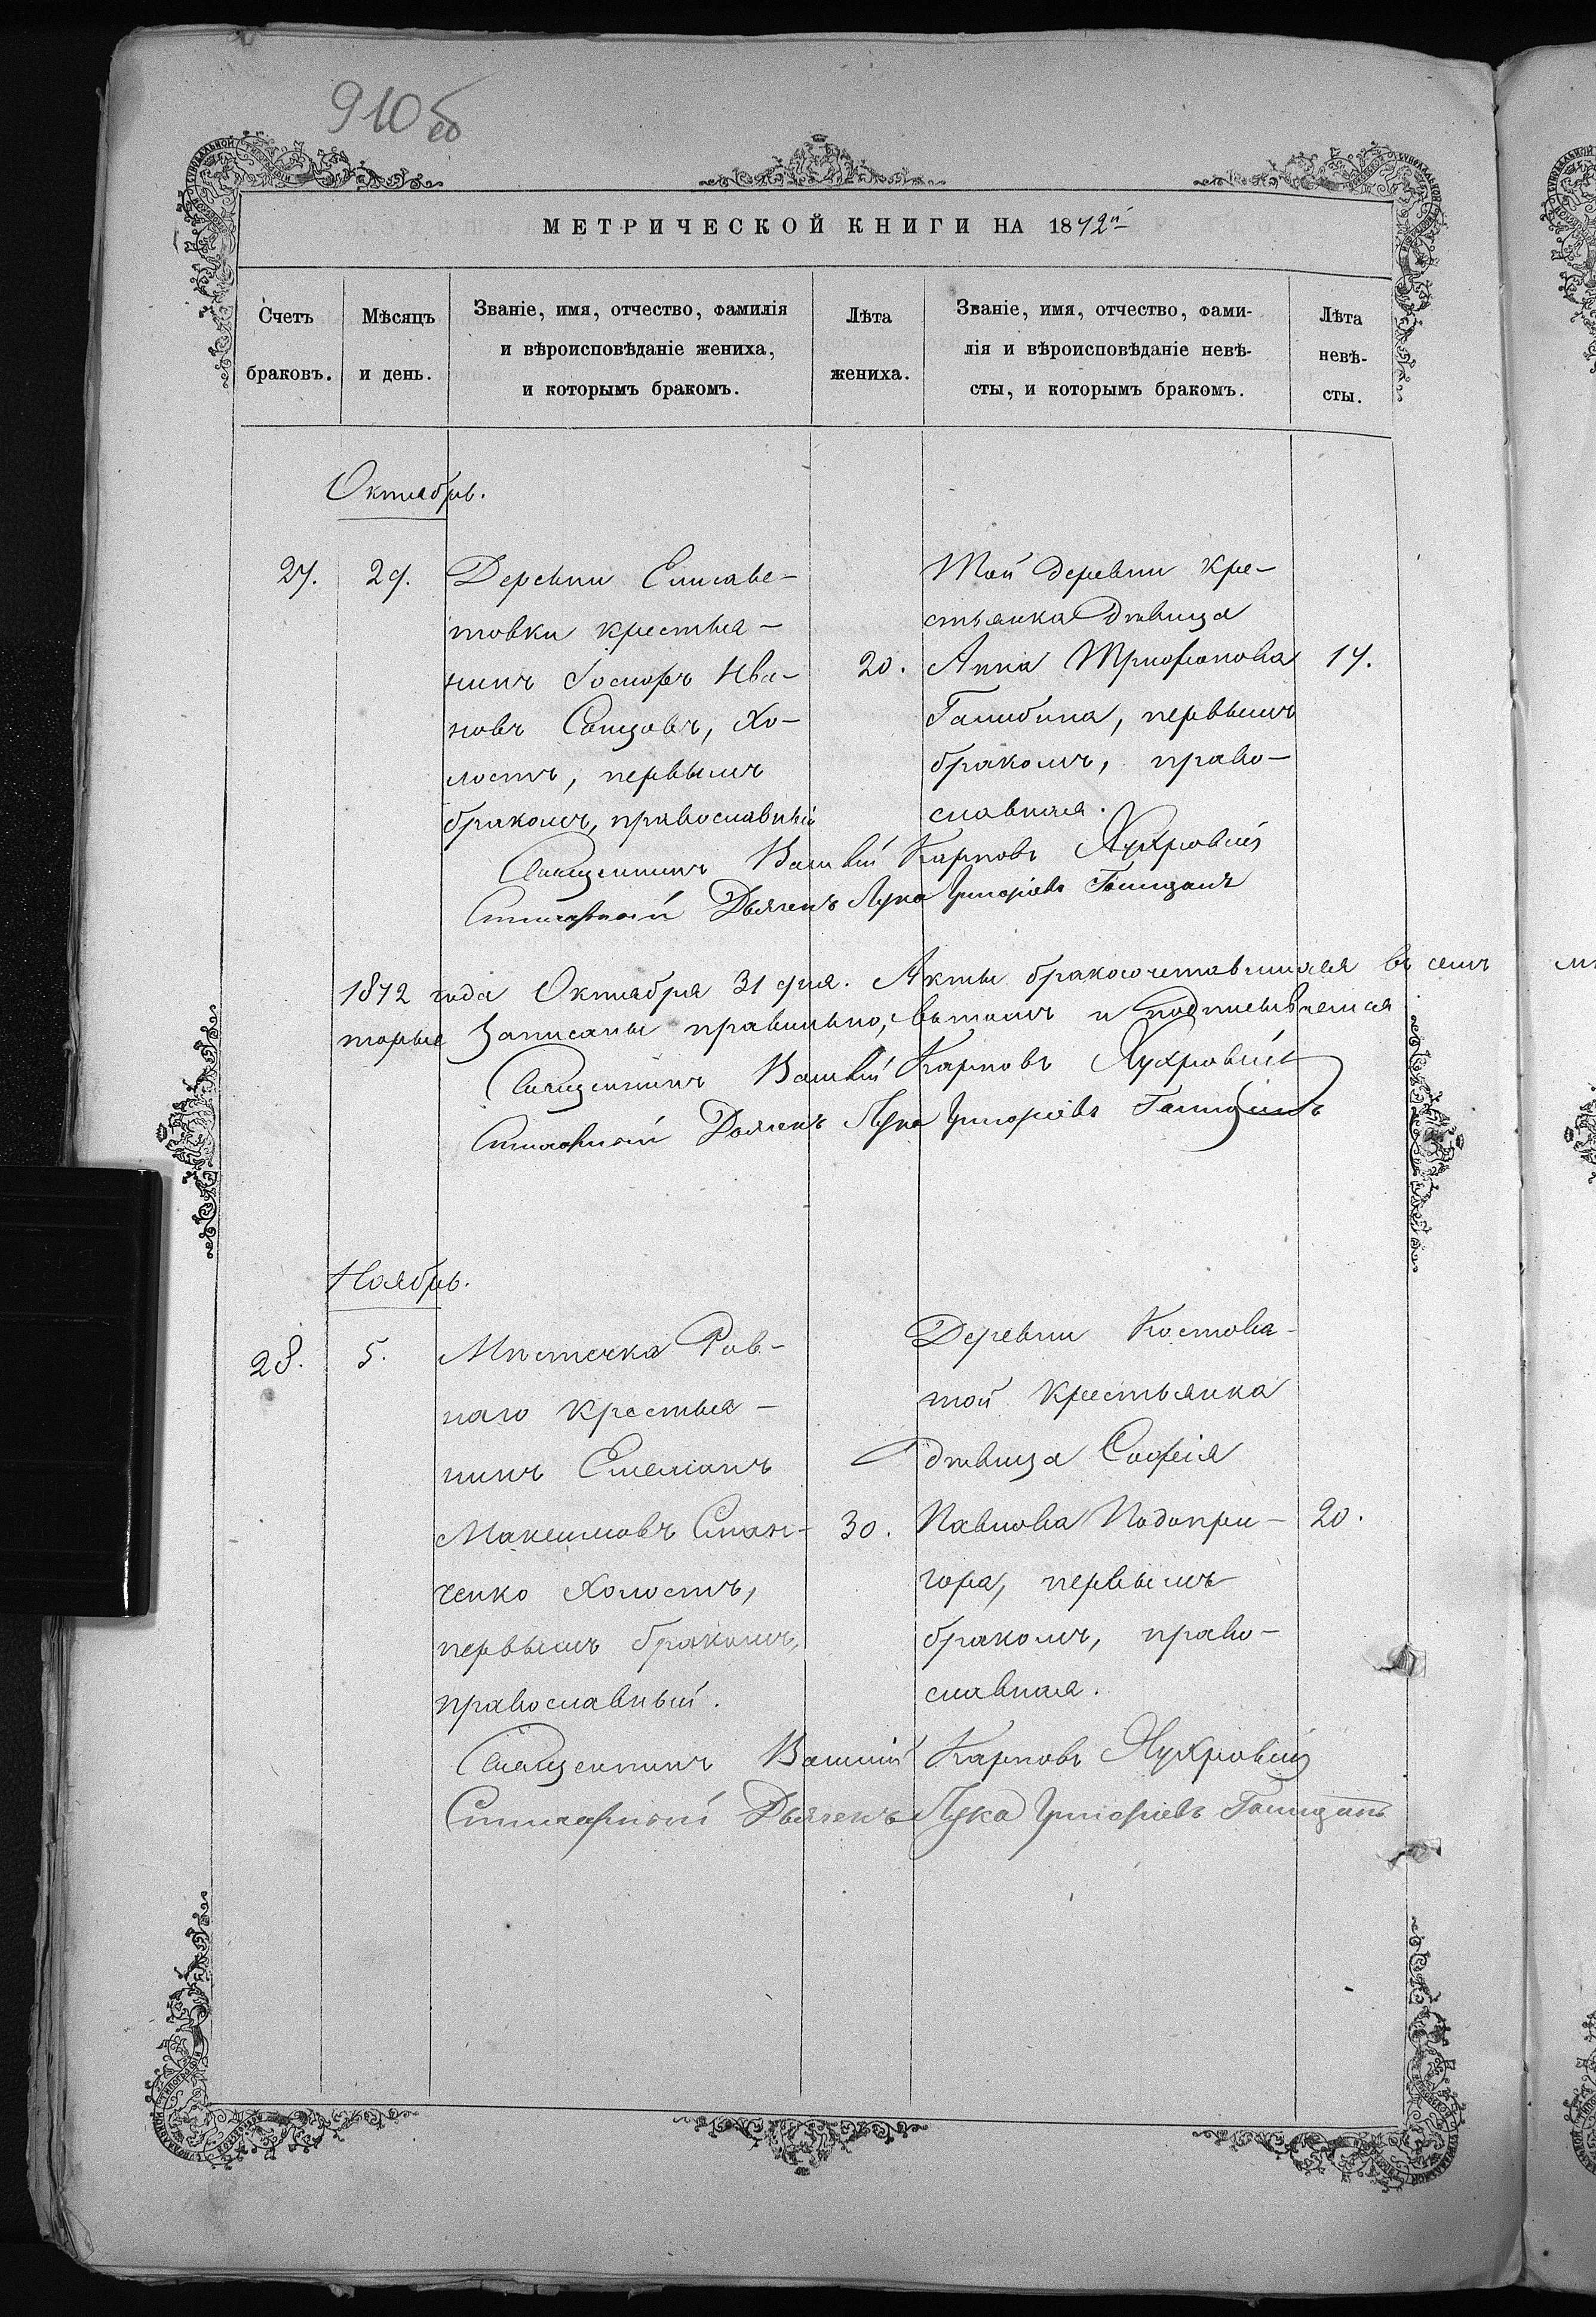 910 об
МЕТРИЧЕСКОЙ КНИГИ НА 1872й
Счетъ браковъ.
Мѣсяцъ и день.
Званіе, имя, отчество, фамилія
и вѣроисповѣданіе жениха,
и которымъ бракомъ.
Лѣта жениха.
Званіе, имя, отчество, фами-
лія и вѣроисповѣданіе невѣ-
сты, и которымъ бракомъ.
Лѣта невѣ-
сты.
Октябрь.
27.
29.
Деревни Елисаве-
товки крестья-
нинъ Ива-
новъ хо-
лостъ, первымъ
бракомъ, православный
20.
Той деревни кре-
стьянка девица
Анна Трифонова
Галибина, первымъ
бракомъ, право-
славная.
17.
Священникъ Василій Карповъ
Дьячекъ Лука Григоріевъ
1872 года Октября 31 дня. Акты бракосочетавшихся въ семъ
записаны правильно, въ томъ и подписываемся
Священникъ Василій Карповъ
Дьячекъ Лука Григоріевъ
Ноябрь.
28.
5.
Мѣстечка Ров-
наго крестья-
нинъ Емеліанъ
Максимовъ Стан-
ченко холостъ,
первымъ бракомъ,
православный.
30.
Деревни Костова-
той крестьянка
девица Софія
Павлова Подопри-
гора, первымъ
бракомъ, право-
славная.
20.
Священникъ Василій Карповъ
Дьячекъ Лука Григоріевъ